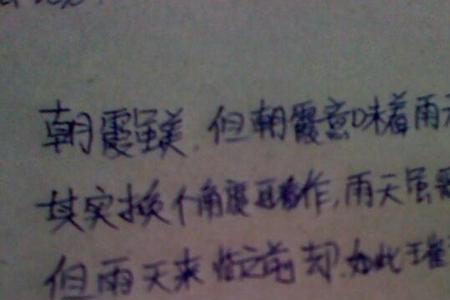 朝霞虽美,但朝霞意味着雨天
其实换个角度看作,雨天虽
但雨天来临之前却如此璀